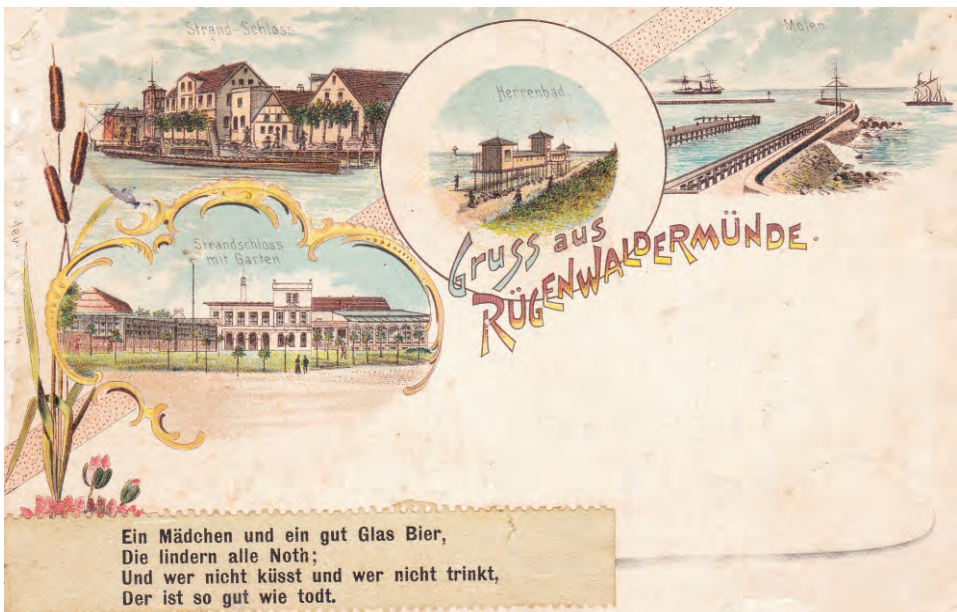 Strand-Schloss
Herrenbad.
Molen
Strandschloss
mit Garten
Gruss aus
RÜGENWALDERMÜNDE.
Ein Mädchen und ein gut Glas Bier,
Die lindern alle Noth;
Und wer nicht küsst und wer nicht trinkt,
Der ist so gut wie todt.